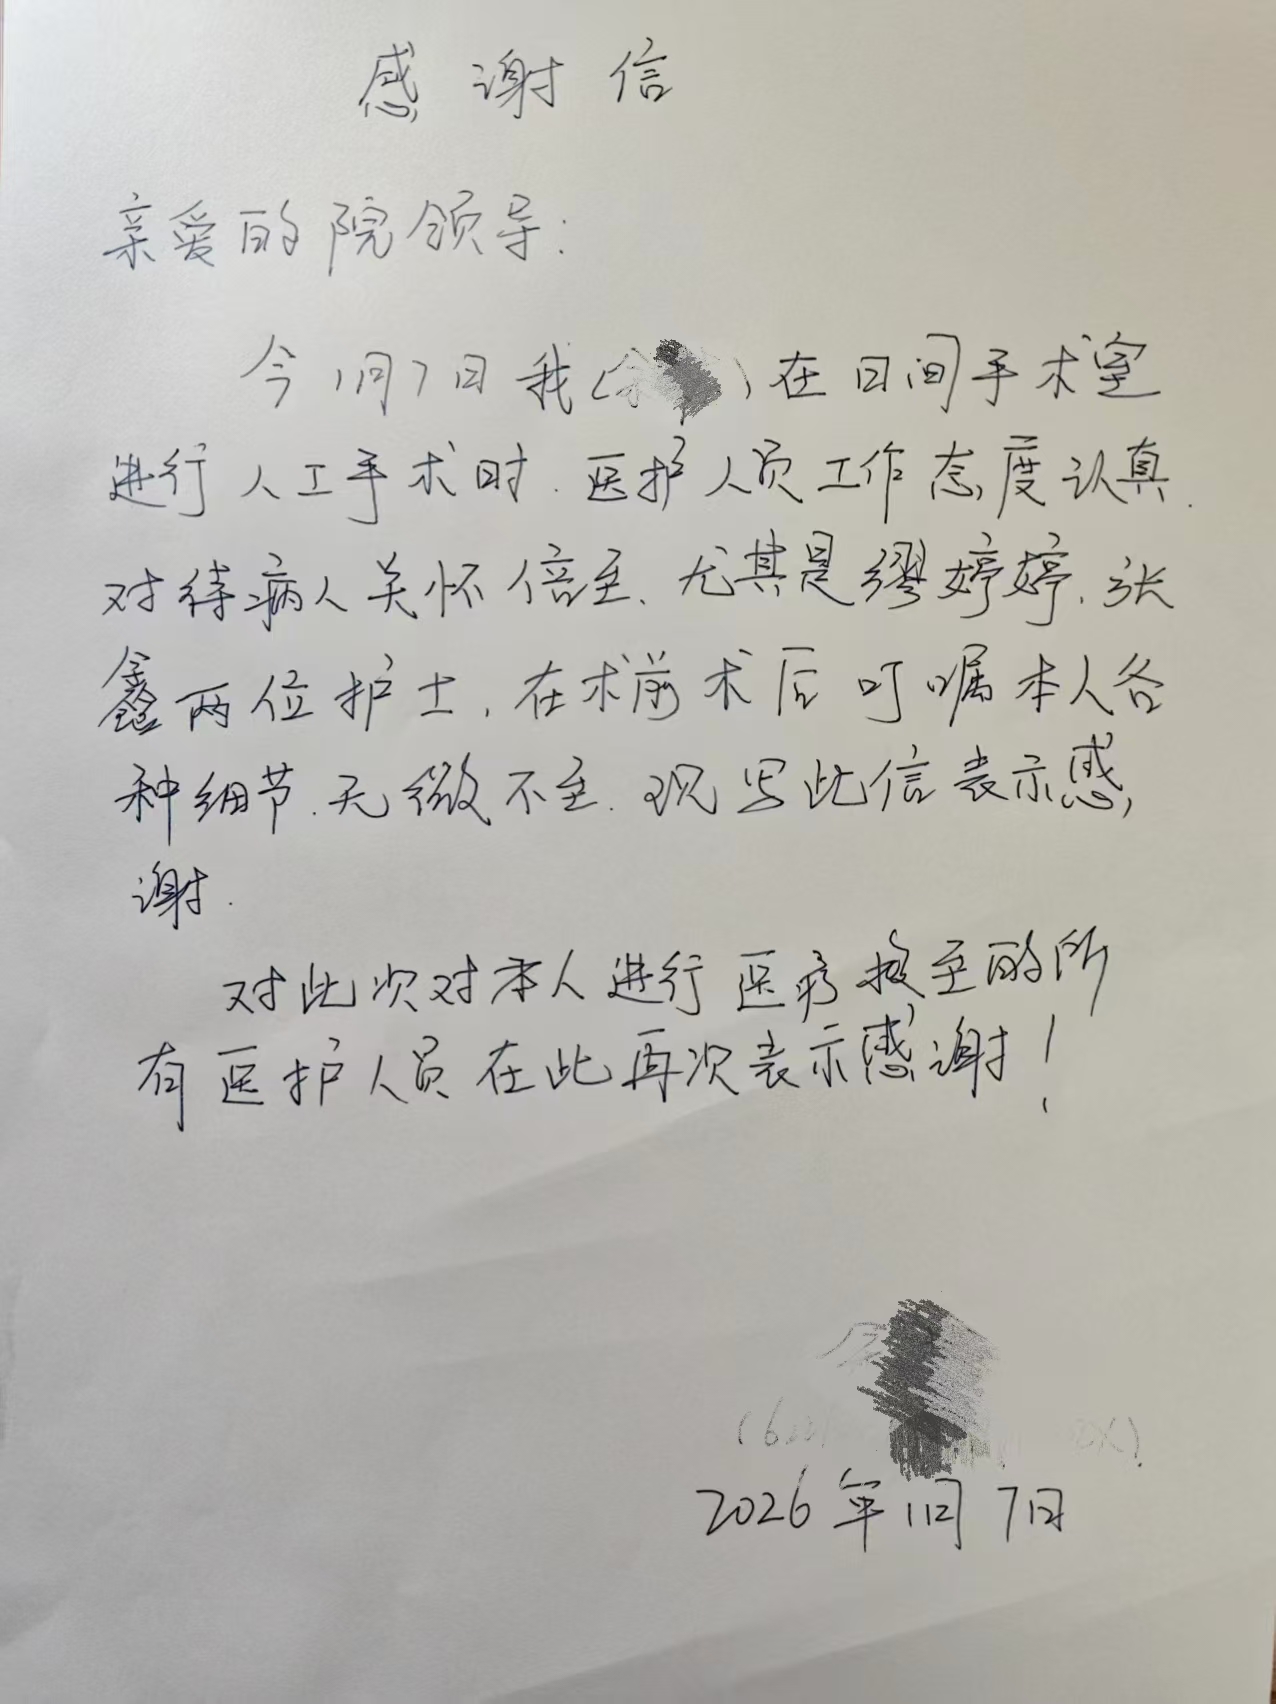 感谢信
亲爱的院领导：
今1月7日我（）在日间手术室
进行人工手术时.医护人员工作态度认真.
对待病人关怀倍至、尤其是缪婷婷、张
鑫两位护士，在术前术后叮嘱本人各
种细节.无微不至.现写此信表示感
谢.
对此次对本人进行医疗救至的所
有医护人员在此再次表示感谢！
2026年1月7日